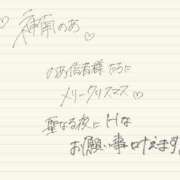 神南のあ♡
♡
のあ信者様たちに
メリークリスマス♡
聖なる夜にHな
お願い事叶えます